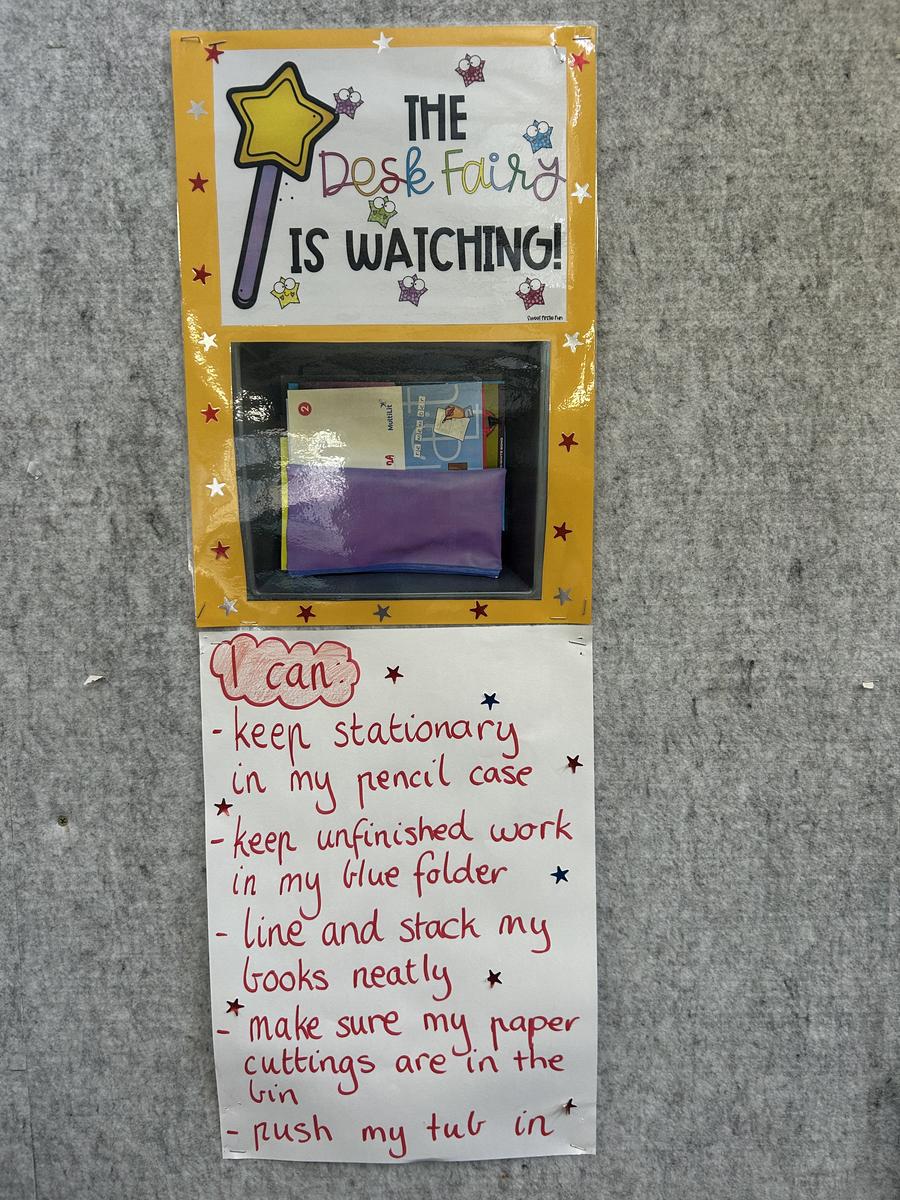 THE
Desk Fairy
IS WATCHING!
Sweet Firstie Fun
2
MultiLit
I can:
- keep stationary
in my pencil case
- keep unfinished work
in my blue folder
- line and stack my
books neatly
- make sure my paper
cuttings are in the
bin
- push my tub in